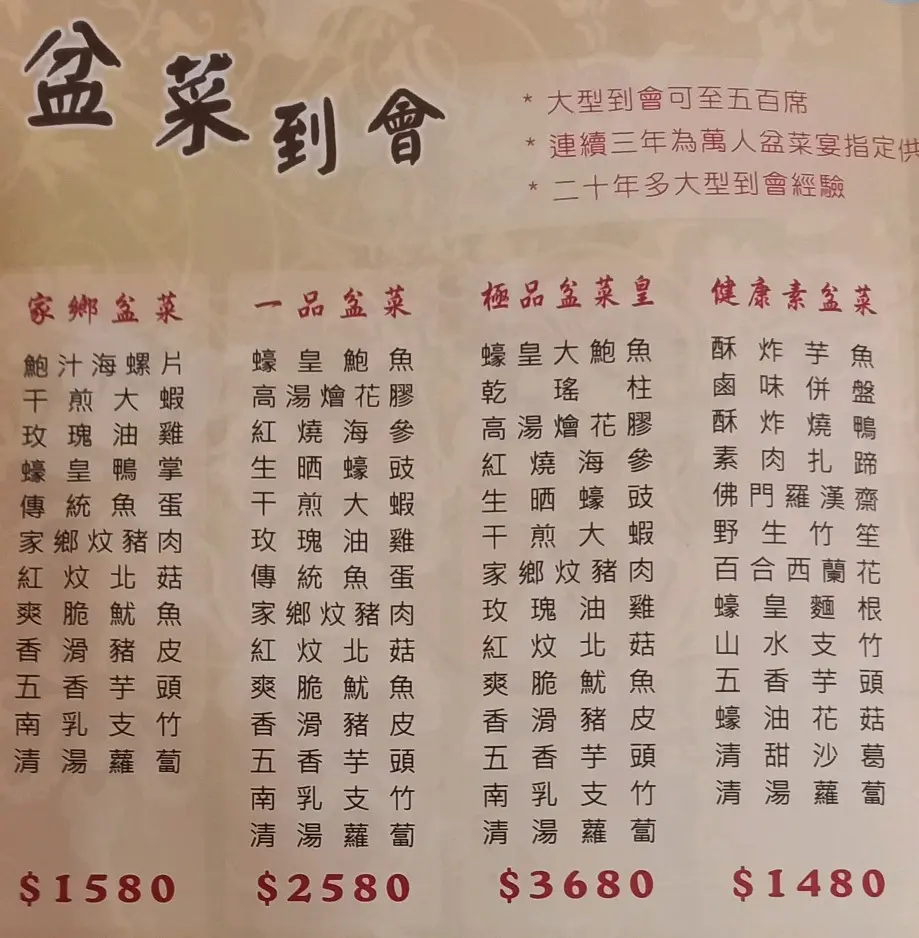 盆菜到會
* 大型到會可至五百席
* 連續三年為萬人盆菜宴指定供
* 二十年多大型到會經驗
家鄉盆菜
鮑汁海螺片
干煎大蝦
玫瑰油雞
蠔皇鴨掌
傳統魚蛋
家鄉炆豬肉
紅炆北菇
爽脆魷魚
香滑豬皮
五香芋頭
南乳支竹
清湯蘿蔔
$1580
一品盆菜
蠔皇鮑魚
高湯燴花膠
紅燒海參
生晒蠔豉
干煎大蝦
玫瑰油雞
傳統魚蛋
家鄉炆豬肉
紅炆北菇
爽脆魷魚
香滑豬皮
五香芋頭
南乳支竹
清湯蘿蔔
$2580
極品盆菜皇
蠔皇大鮑魚
乾瑤柱
高湯燴花膠
紅燒海參
生晒蠔豉
干煎大蝦
家鄉炆豬肉
玫瑰油雞
紅炆北菇
爽脆魷魚
香滑豬皮
五香芋頭
南乳支竹
清湯蘿蔔
$3680
健康素盆菜
酥炸芋魚
鹵味併盤
酥炸燒鴨
素肉扎蹄
佛門羅漢齋
野生竹笙
百合西蘭花
蠔皇麵根
山水支竹
五香芋頭
蠔油花菇
清甜沙葛
清湯蘿蔔
$1480